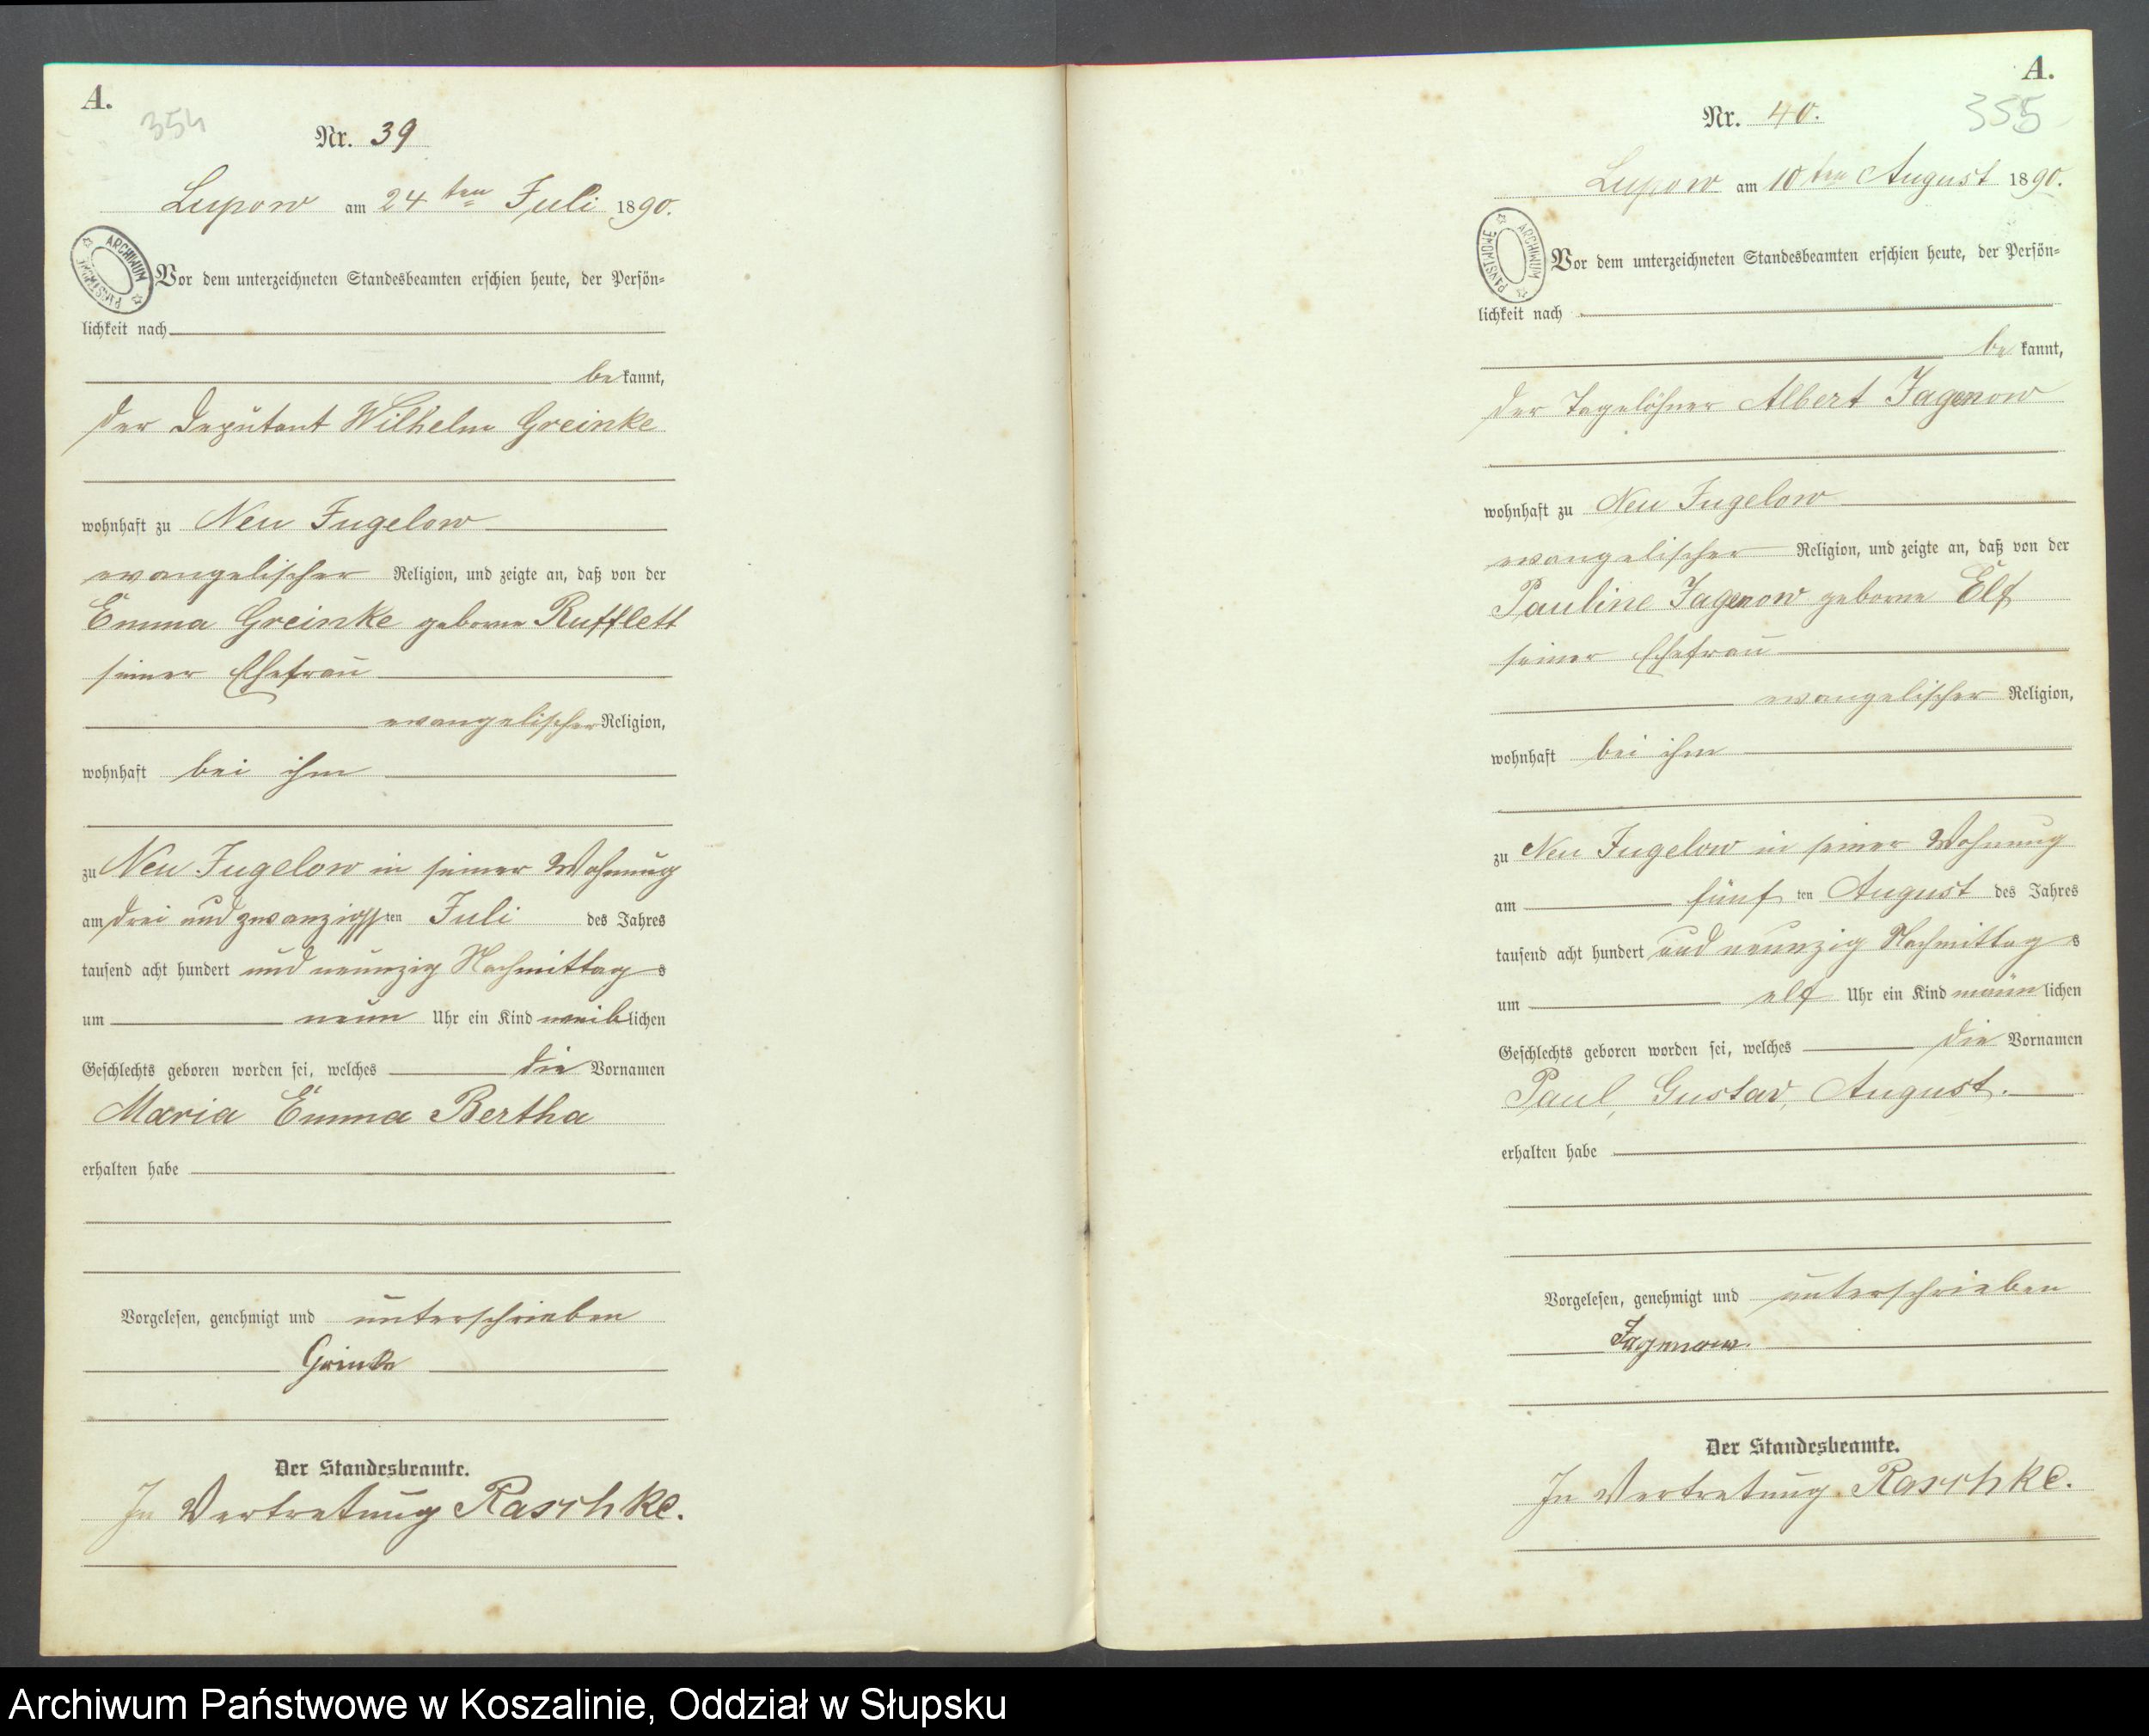 A.
354
Nr. 39
Lupow am 24ten Juli 1890.
ARCHIWUM PAŃSTWOWE
Vor dem unterzeichneten Standesbeamten erschien heute, der Persön=
lichkeit nach
be kannt,
der Deputant Wilhelm Greinke
wohnhaft zu Neu Jugelow
evangelischer Religion, und zeigte an, daß von der
Emma Greinke geborne Rufflett
seiner Ehefrau
evangelischer Religion,
wohnhaft bei ihm
zu Neu Jugelow in seiner Wohnung
am drei und zwanzigsten Juli des Jahres
tausend acht hundert und neunzig Nachmittags
um neun Uhr ein Kind weiblichen
Geschlechts geboren worden sei, welches die Vornamen
Maria Emma Bertha
erhalten habe
Vorgelesen, genehmigt und unterschrieben
Greinke
Der Standesbeamte.
In Vertretung Raschke.
A.
355
Nr. 40.
Lupow am 10ten August 1890.
ARCHIWUM PAŃSTWOWE
Vor dem unterzeichneten Standesbeamten erschien heute, der Persön=
lichkeit nach
be kannt,
der Tagelöhner Albert Jagenow
wohnhaft zu Neu Jugelow
evangelischer Religion, und zeigte an, daß von der
Pauline Jagenow geborne Elf
seiner Ehefrau
evangelischer Religion,
wohnhaft bei ihm
zu Neu Jugelow in seiner Wohnung
am fünften August des Jahres
tausend acht hundert und neunzig Nachmittags
um elf Uhr ein Kind männlichen
Geschlechts geboren worden sei, welches die Vornamen
Paul, Gustav, August.
erhalten habe
Vorgelesen, genehmigt und unterschrieben
Jagenow.
Der Standesbeamte.
In Vertretung Raschke.
Archiwum Państwowe w Koszalinie, Oddział w Słupsku